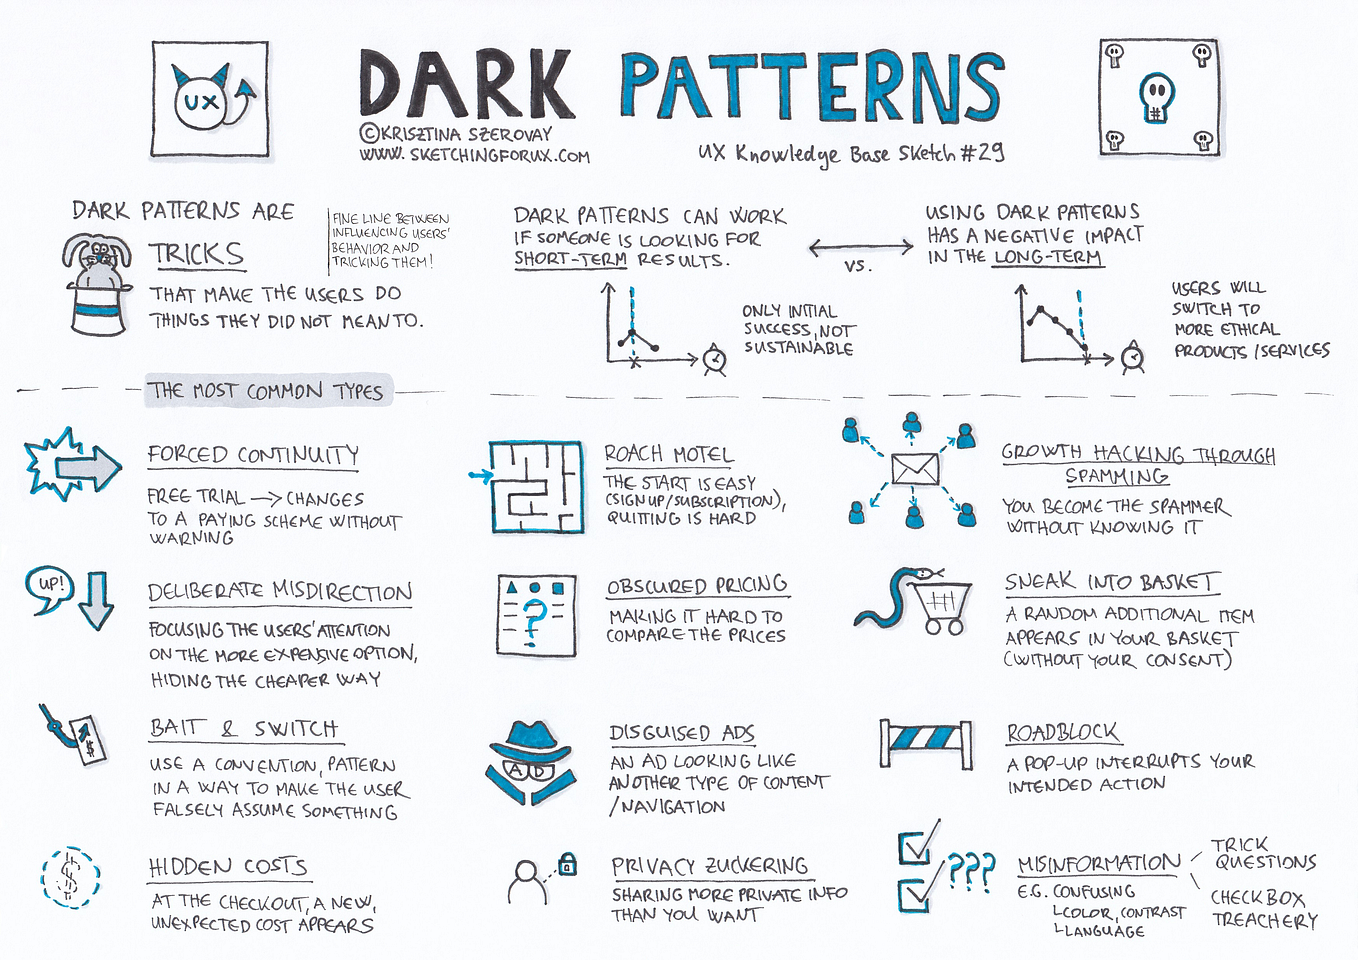 UX
DARK PATTERNS
©KRISZTINA SZEROVAY
WWW.SKETCHINGFORUX.COM
UX Knowledge Base Sketch #29
DARK PATTERNS ARE
TRICKS
THAT MAKE THE USERS DO
THINGS THEY DID NOT MEAN TO.
FINE LINE BETWEEN
INFLUENCING USERS'
BEHAVIOR AND
TRICKING THEM!
DARK PATTERNS CAN WORK
IF SOMEONE IS LOOKING FOR
SHORT-TERM RESULTS.
ONLY INITIAL
SUCCESS, NOT
SUSTAINABLE
VS.
USING DARK PATTERNS
HAS A NEGATIVE IMPACT
IN THE LONG-TERM
USERS WILL
SWITCH TO
MORE ETHICAL
PRODUCTS/SERVICES
THE MOST COMMON TYPES
FORCED CONTINUITY
FREE TRIAL → CHANGES
TO A PAYING SCHEME WITHOUT
WARNING
ROACH MOTEL
THE START IS EASY
(SIGN UP/SUBSCRIPTION),
QUITTING IS HARD
GROWTH HACKING THROUGH
SPAMMING
YOU BECOME THE SPAMMER
WITHOUT KNOWING IT
UP!
DELIBERATE MISDIRECTION
FOCUSING THE USERS' ATTENTION
ON THE MORE EXPENSIVE OPTION,
HIDING THE CHEAPER WAY
?
OBSCURED PRICING
MAKING IT HARD TO
COMPARE THE PRICES
SNEAK INTO BASKET
A RANDOM ADDITIONAL ITEM
APPEARS IN YOUR BASKET
(WITHOUT YOUR CONSENT)
$
BAIT & SWITCH
USE A CONVENTION, PATTERN
IN A WAY TO MAKE THE USER
FALSELY ASSUME SOMETHING
AD
DISGUISED ADS
AN AD LOOKING LIKE
ANOTHER TYPE OF CONTENT
/NAVIGATION
ROADBLOCK
A POP-UP INTERRUPTS YOUR
INTENDED ACTION
$
HIDDEN COSTS
AT THE CHECKOUT, A NEW,
UNEXPECTED COST APPEARS
PRIVACY ZUCKERING
SHARING MORE PRIVATE INFO
THAN YOU WANT
???
MISINFORMATION
E.G. CONFUSING
COLOR, CONTRAST
LANGUAGE
TRICK
QUESTIONS
CHECKBOX
TREACHERY